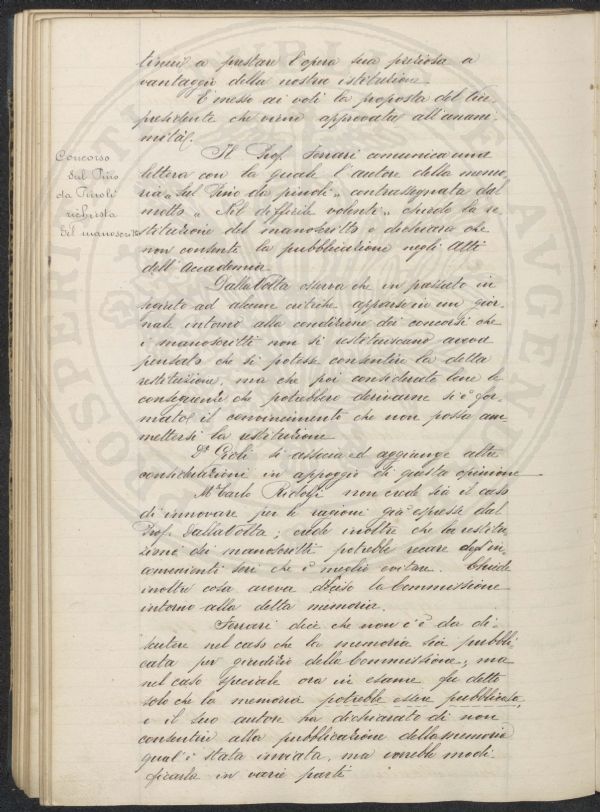 tinui a prestare l'opera sua preziosa a
vantaggio della nostra istituzione
E' messo ai voti la proposta del Vice
presidente che viene approvata all'unani-
mità.
Concorso
sul Pino
da Pinoli
richiesta
del manoscritto
Il Prof. Ferrari comunica una
lettera con la quale l'autore della memo-
ria "sul Pino da pinoli" contrassegnata dal
motto "Nil difficile volenti" chiede la re-
stituzione del manoscritto e dichiara che
non consente la pubblicazione negli Atti
dell'Accademia
Dalla Volta osserva che in passato in
seguito ad alcune critiche apparse in un gior-
nale intorno alla condizione dei concorsi che
i manoscritti non si restituiscano aveva
pensato che si potesse consentire la detta
restituzione, ma che poi considerate bene le
conseguenze che potrebbero derivarne si è for-
mato il convincimento che non possa am-
mettersi la restituzione
Dr. Gioli si associa ed aggiunge altre
considerazioni in appoggio di questa opinione
Mse Carlo Ridolfi non crede sia il caso
di innovare per le ragioni già espresse dal
Prof. Dalla Volta; crede inoltre che la restitu-
zione dei manoscritti potrebbe recare degl'in-
convenienti seri che è meglio evitare. Chiede
inoltre cosa aveva deciso la Commissione
intorno alla detta memoria.
Ferrari dice che non c'è da di-
scutere nel caso che la memoria sia pubbli-
cata per giudizio della Commissione; ma
nel caso speciale ora in esame fu detto
solo che la memoria potrebbe essere pubblicata
e il suo autore ha dichiarato di non
consentire alla pubblicazione della memoria
qual'è stata inviata, ma vorrebbe modi-
ficarla in varie parti